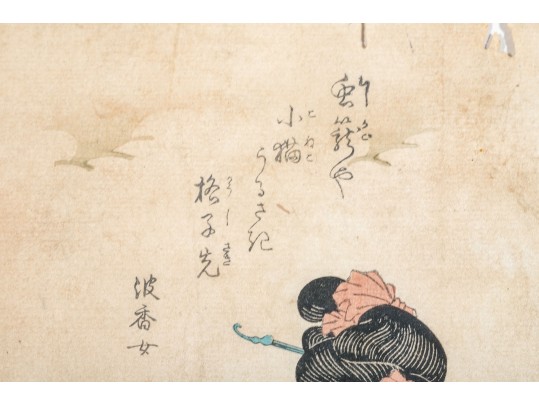 虫籠や
小猫
うるさき
格子先
波香女